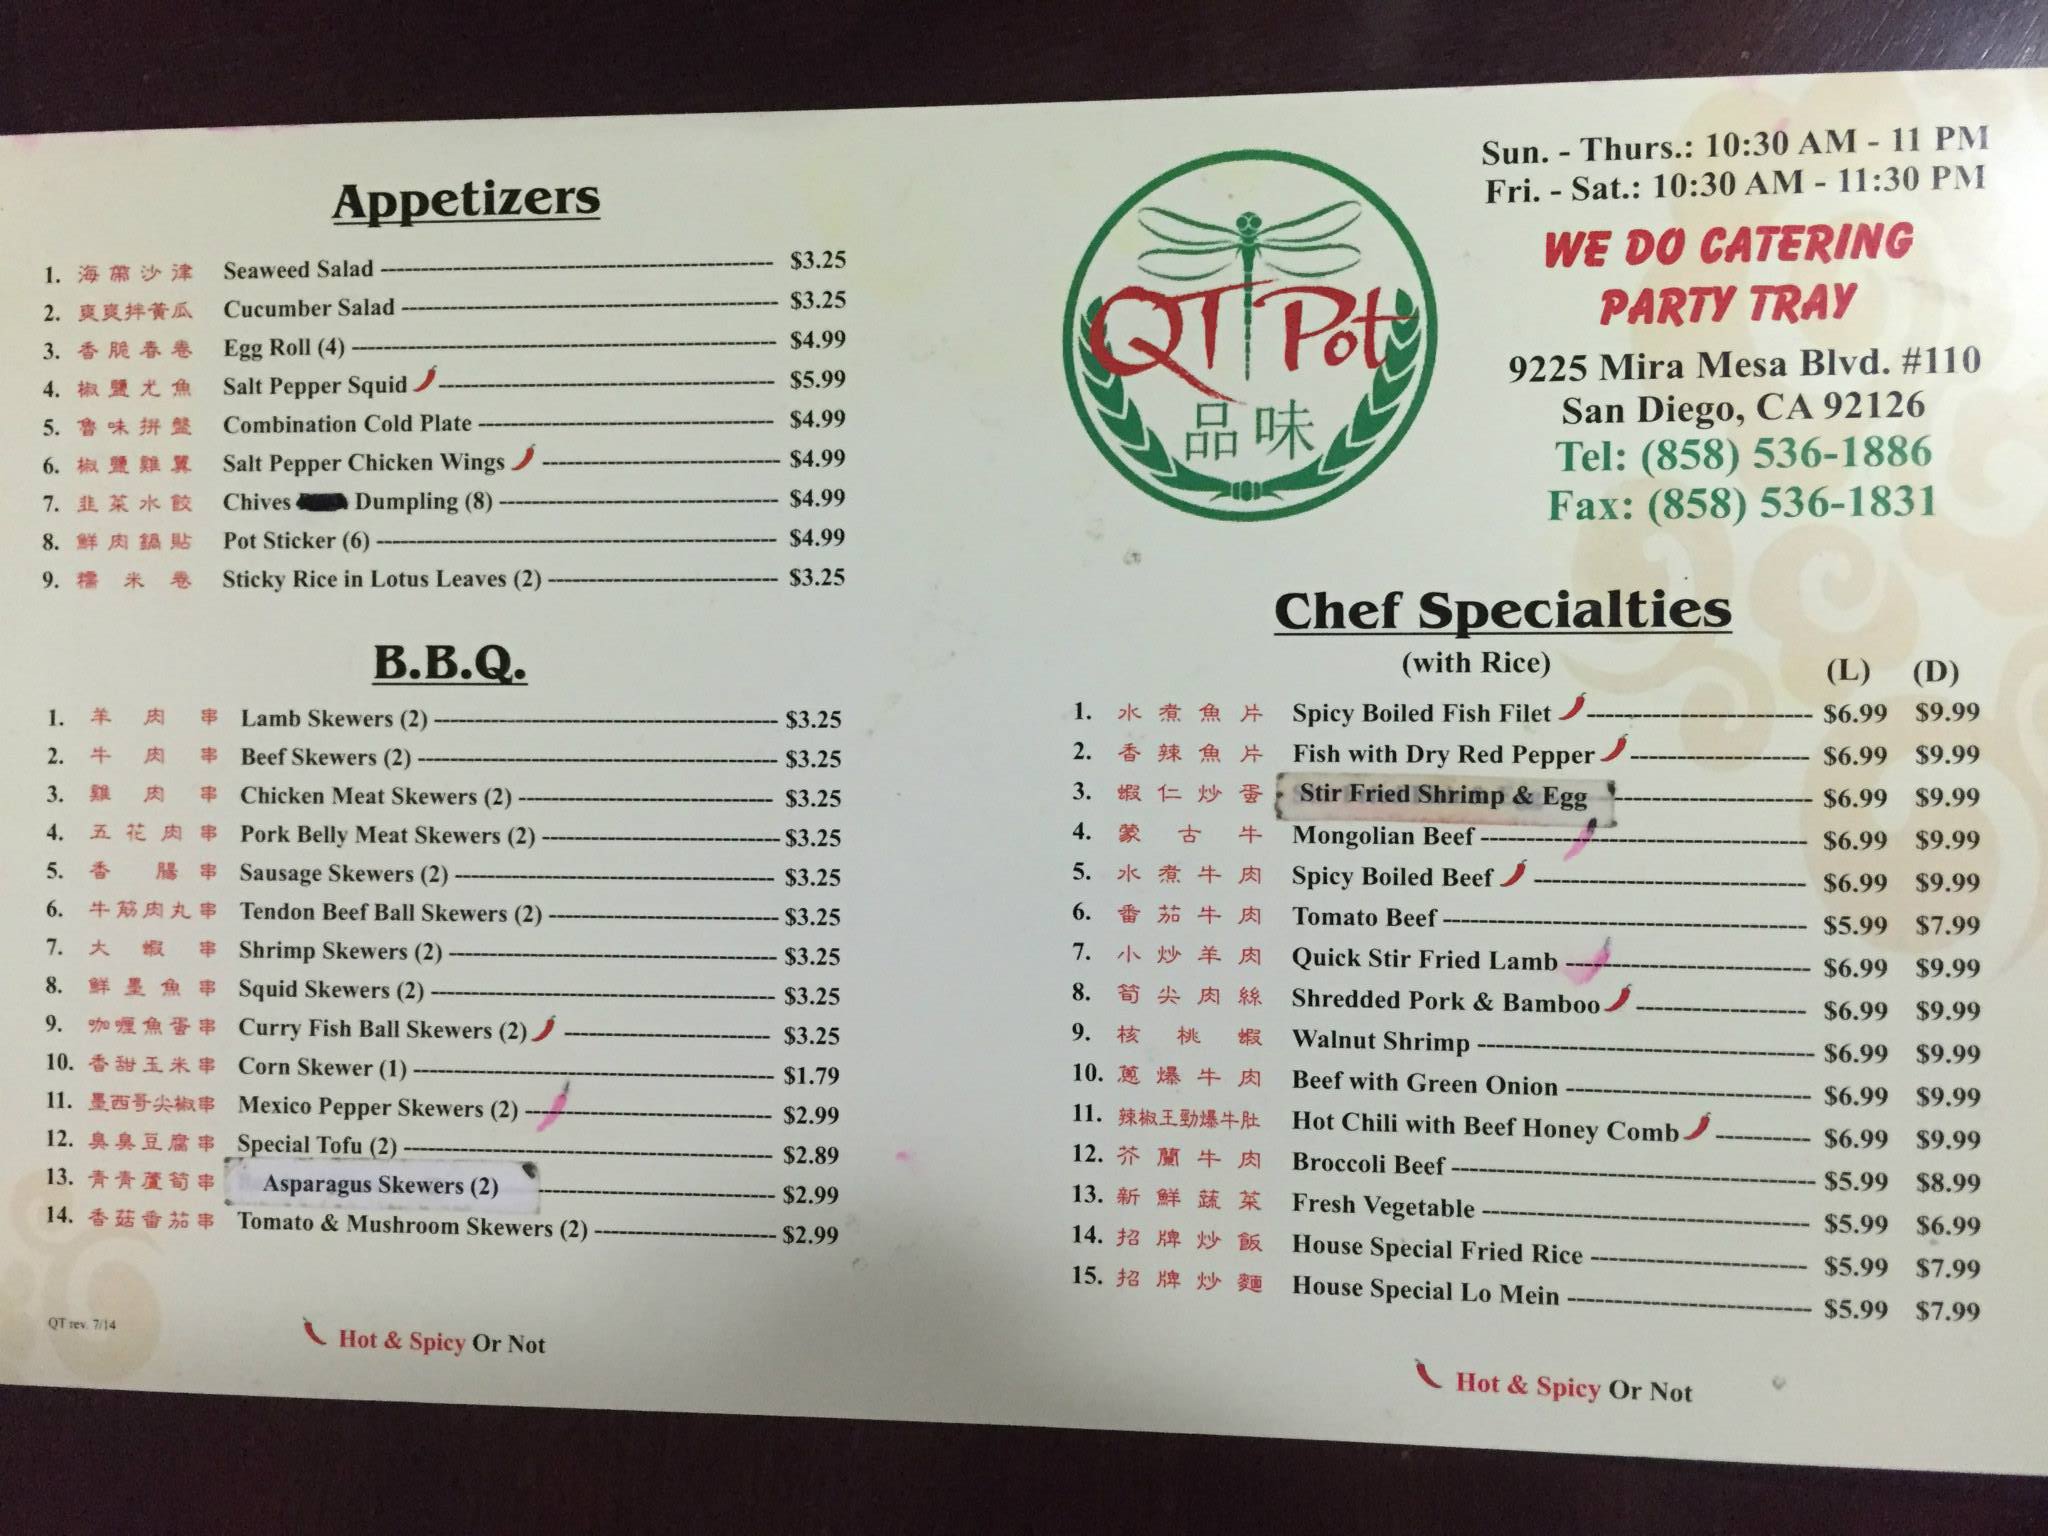 Appetizers
1. 海帶沙津 Seaweed Salad $3.25
2. 爽爽拌黃瓜 Cucumber Salad $3.25
3. 香脆春卷 Egg Roll (4) $4.99
4. 椒鹽尤魚 Salt Pepper Squid $5.99
5. 魯味拼盤 Combination Cold Plate $4.99
6. 椒鹽雞翼 Salt Pepper Chicken Wings $4.99
7. 韭菜水餃 Chives Dumpling (8) $4.99
8. 鮮肉鍋貼 Pot Sticker (6) $4.99
9. 糯米卷 Sticky Rice in Lotus Leaves (2) $3.25
B.B.Q.
1. 羊肉串 Lamb Skewers (2) $3.25
2. 牛肉串 Beef Skewers (2) $3.25
3. 雞肉串 Chicken Meat Skewers (2) $3.25
4. 五花肉串 Pork Belly Meat Skewers (2) $3.25
5. 香腸串 Sausage Skewers (2) $3.25
6. 牛筋肉丸串 Tendon Beef Ball Skewers (2) $3.25
7. 大蝦串 Shrimp Skewers (2) $3.25
8. 鮮墨魚串 Squid Skewers (2) $3.25
9. 咖喱魚蛋串 Curry Fish Ball Skewers (2) $3.25
10. 香甜玉米串 Corn Skewer (1) $1.79
11. 墨西哥尖椒串 Mexico Pepper Skewers (2) $2.99
12. 臭臭豆腐串 Special Tofu (2) $2.89
13. 青青蘆筍串 Asparagus Skewers (2) $2.99
14. 香菇番茄串 Tomato & Mushroom Skewers (2) $2.99
QT rev. 7/14
Hot & Spicy Or Not
QT Pot
品味
Sun. - Thurs.: 10:30 AM - 11 PM
Fri. - Sat.: 10:30 AM - 11:30 PM
WE DO CATERING
PARTY TRAY
9225 Mira Mesa Blvd. #110
San Diego, CA 92126
Tel: (858) 536-1886
Fax: (858) 536-1831
Chef Specialties
(with Rice) (L) (D)
1. 水煮魚片 Spicy Boiled Fish Filet $6.99 $9.99
2. 香辣魚片 Fish with Dry Red Pepper $6.99 $9.99
3. 蝦仁炒蛋 Stir Fried Shrimp & Egg $6.99 $9.99
4. 蒙古牛 Mongolian Beef $6.99 $9.99
5. 水煮牛肉 Spicy Boiled Beef $6.99 $9.99
6. 番茄牛肉 Tomato Beef $5.99 $7.99
7. 小炒羊肉 Quick Stir Fried Lamb $6.99 $9.99
8. 筍尖肉絲 Shredded Pork & Bamboo $6.99 $9.99
9. 核桃蝦 Walnut Shrimp $6.99 $9.99
10. 蔥爆牛肉 Beef with Green Onion $6.99 $9.99
11. 辣椒王勁爆牛肚 Hot Chili with Beef Honey Comb $6.99 $9.99
12. 芥蘭牛肉 Broccoli Beef $5.99 $8.99
13. 新鮮蔬菜 Fresh Vegetable $5.99 $6.99
14. 招牌炒飯 House Special Fried Rice $5.99 $7.99
15. 招牌炒麵 House Special Lo Mein $5.99 $7.99
Hot & Spicy Or Not